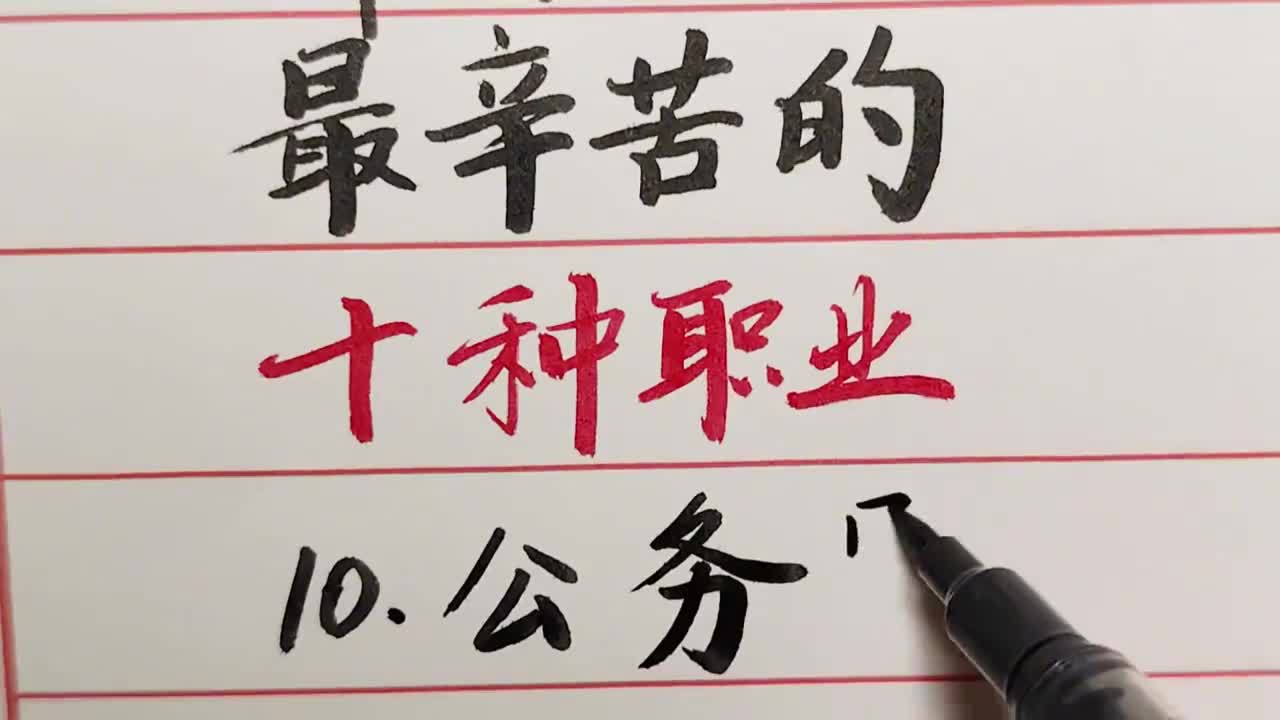 最辛苦的
十种职业
10.公务